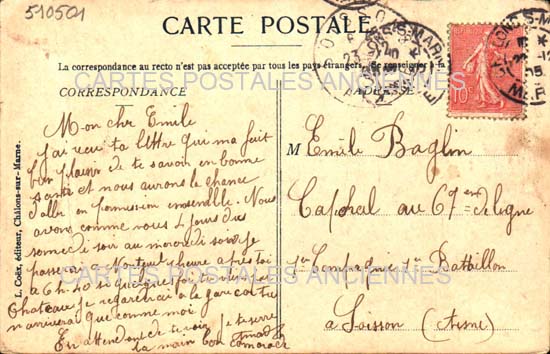 510501
CARTE POSTALE
La correspondance au recto n'est pas acceptée par tous les pays étrangers. Se renseigner à la
CORRESPONDANCE
ADRESSE
CARTES POSTALES ANCIENNES
Mon cher Emile
j'ai recu ta lettre qui ma fait
bien plaisir de te savoir en bonne
santé et nous aurons le chance
d'aller en permission ensemble. Nous
avons comme vous 4 jours du
samedi soir au mercredi soir je
passerai à Nanteuil 1 heure après toi
à 6h
Chateau je regarderai à la gare car tu
n'arrivera que comme moi
En attendant de te voir je te serre
la main ton camarade
L. Coëx, éditeur, Châlons-sur-Marne.
M Emile Baglin
Caporal au 67eme de ligne
Compagnie 1er Bataillon
à Soisson (Aisne)
CARTES POSTALES ANCIENNES
CHALONS-S-MARNE
10c